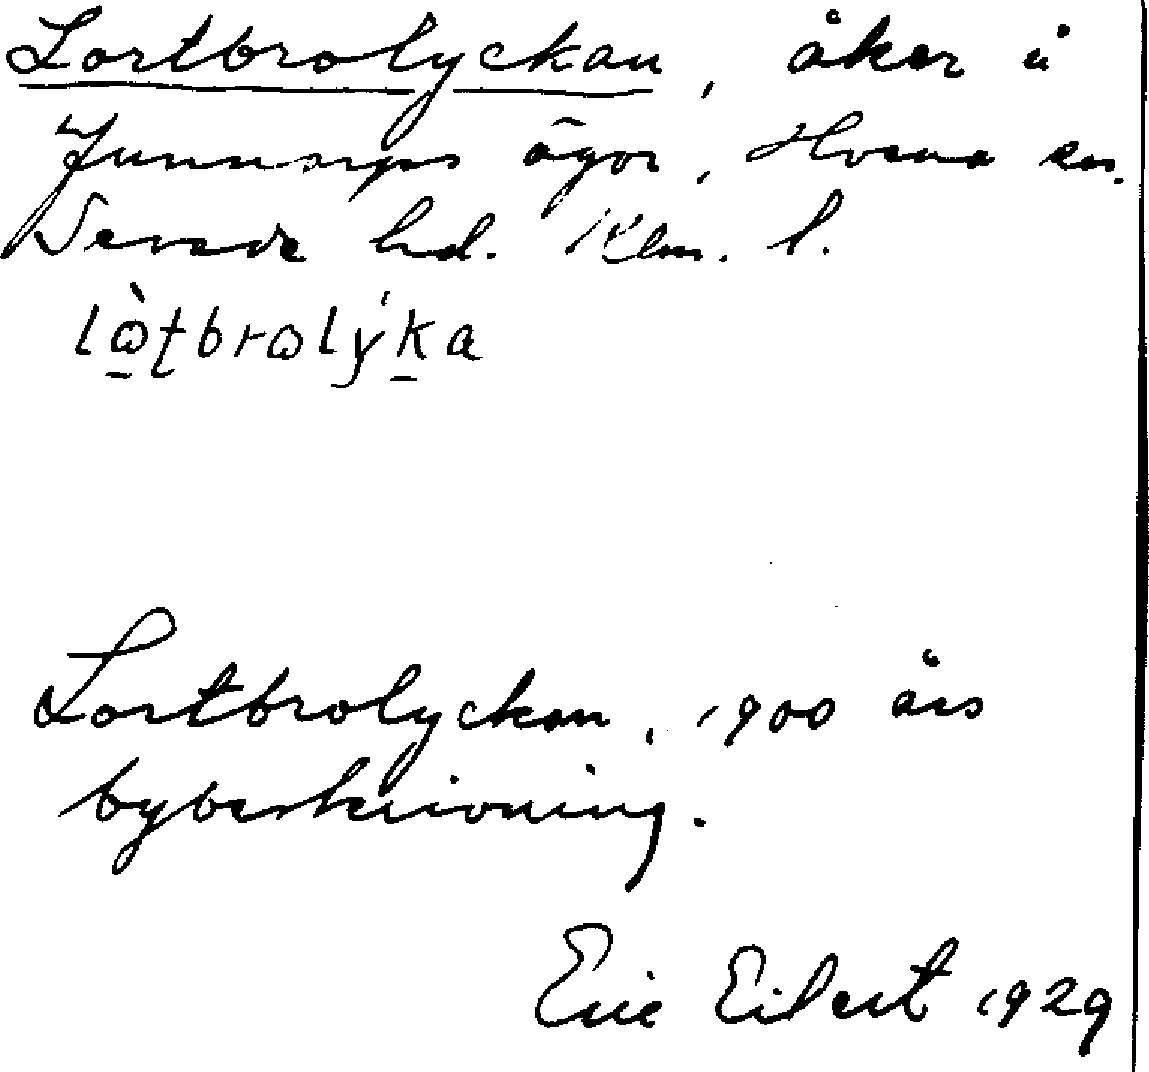 Lortbrolyckan, åker å
Junnarps ägor, Hvena sn.
Sevede hd. Klm. l.
lὼ̲ʈbrωlýk̲a
Lortbrolyckan, 1900 års
bybeskrivning.
Eric Eilert 1929